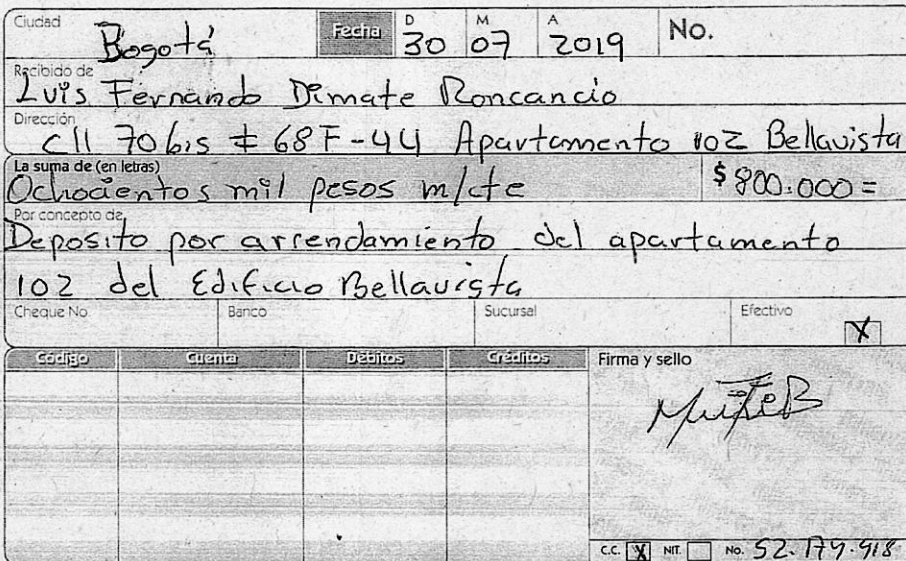 Ciudad Bogotá Fecha D 30 M 07 A 2019 No.
Recibido de
Luis Fernando Dimate Roncancio
Dirección
Cll 70 bis # 68F-44 Apartamento 102 Bellavista
La suma de (en letras)
Ochocientos mil pesos m/cte $ 800.000=
Por concepto de
Deposito por arrendamiento del apartamento
102 del Edificio Bellavista
Cheque No. Banco Sucursal Efectivo X
Código Cuenta Débitos Créditos Firma y sello
C.C. X NIT. No. 52.179.918